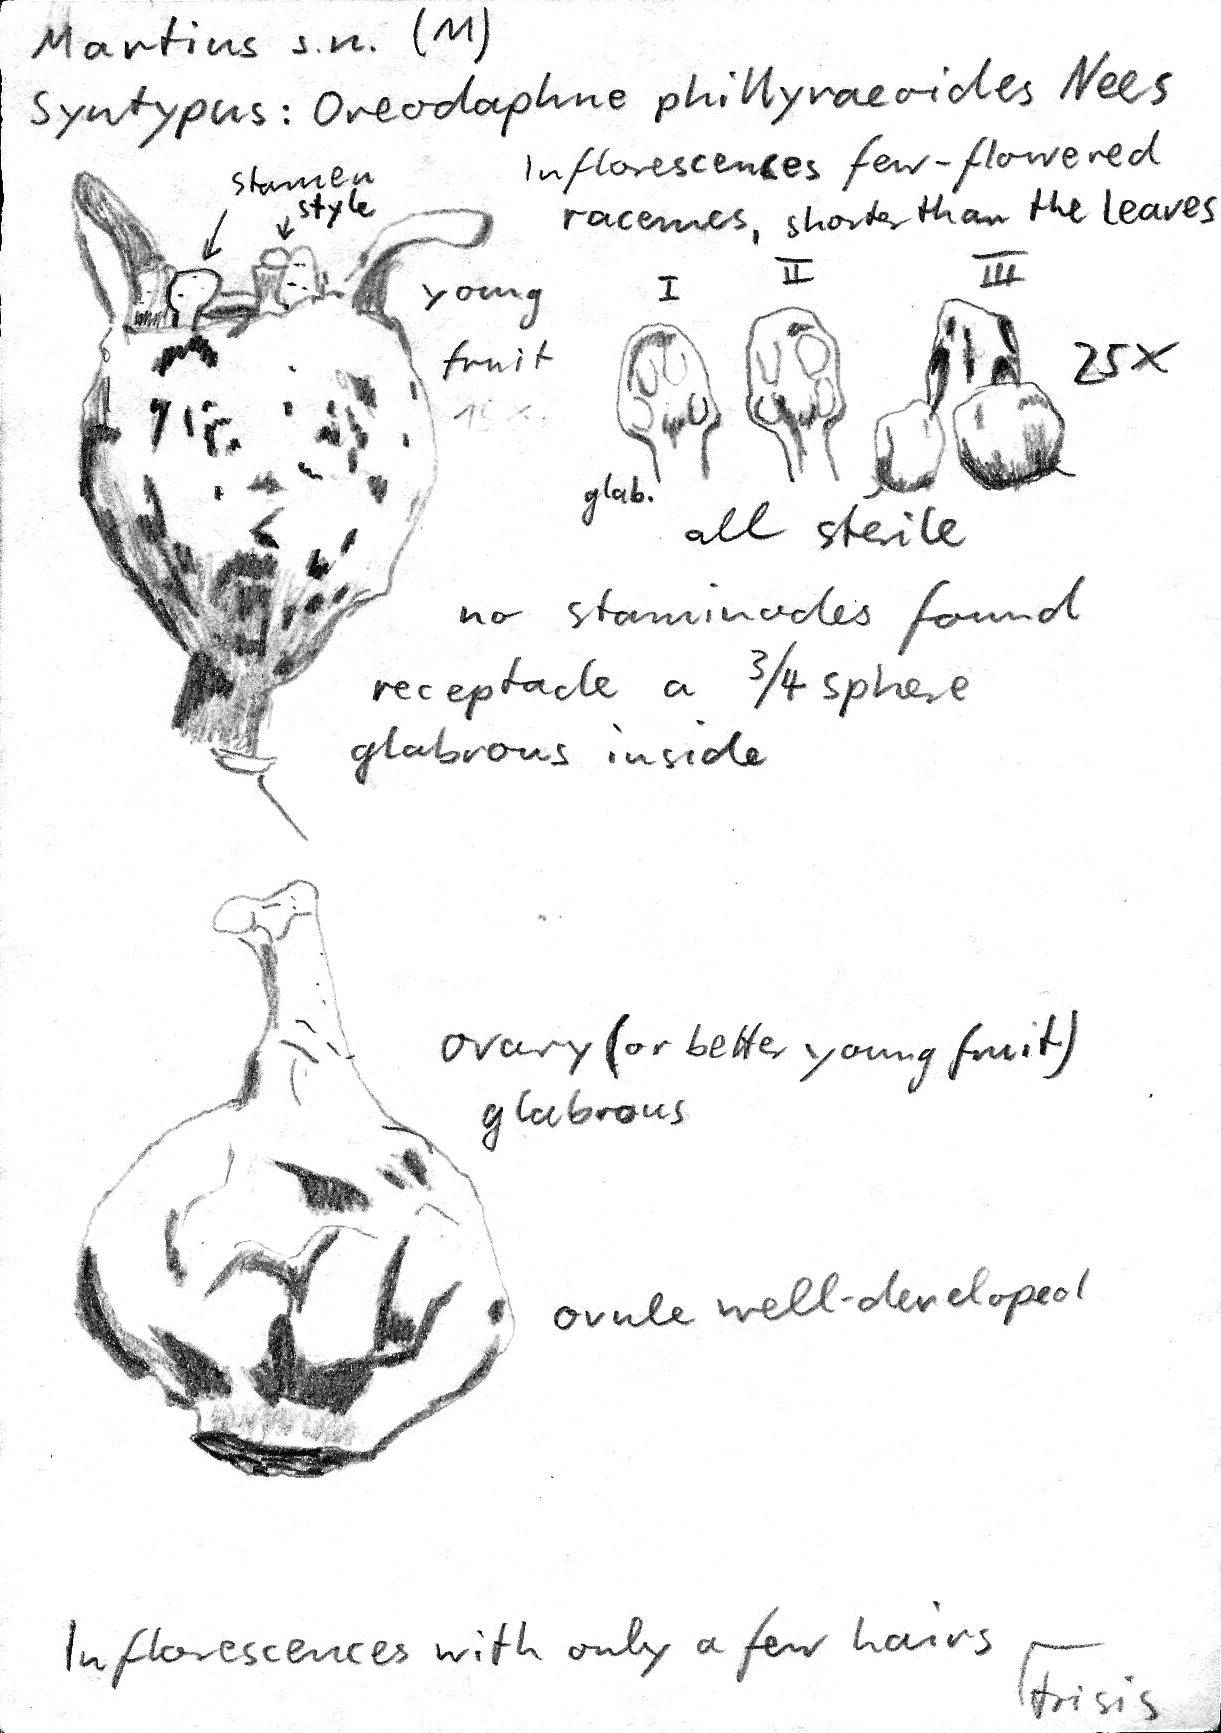 Martius s.n. (M)
Syntypus: Oreodaphne phillyraeoides Nees
Inflorescences few-flowered
racemes, shorter than the leaves
stamen
style
young
fruit
15 x.
I
II
III
25x
glab.
all sterile
no staminodes found
receptacle a 3/4 sphere
glabrous inside
ovary (or better young fruit)
glabrous
ovule well-developed
Inflorescences with only a few hairs